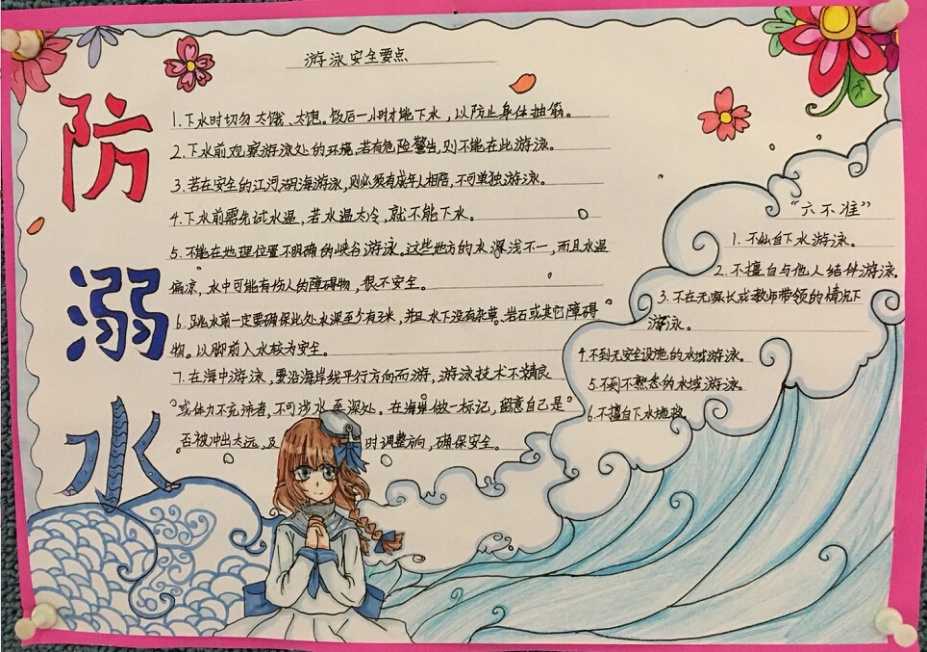 防溺水
游泳安全要点
1.下水时切勿太饿、太饱。饭后一小时才能下水，以防止身体抽筋。
2.下水前观察游泳处的环境，若有危险警告，则不能在此游泳。
3.若在安全的江河湖海游泳，则必须有成年人相陪，不可单独游泳。
4.下水前需先试水温，若水温太冷，就不能下水。
5.不能在地理位置不明确的峡谷游泳。这些地方的水深浅不一，而且水温
偏凉，水中可能有伤人的障碍物，很不安全。
6.跳水前一定要确保此处水深至少有3米，并且水下没有杂草、岩石或其它障碍
物。以脚前入水较为安全。
7.在海中游泳，要沿海岸线平行方向而游，游泳技术不精良
或体力不充沛者，不可涉水至深处。在海岸做一标记，留意自己是
否被冲出太远，及时调整方向，确保安全。
“六不准”
1.不私自下水游泳。
2.不擅自与他人结伴游泳。
3.不在无家长或教师带领的情况下
游泳。
4.不到无安全设施的水域游泳。
5.不到不熟悉的水域游泳。
6.不擅自下水施救。